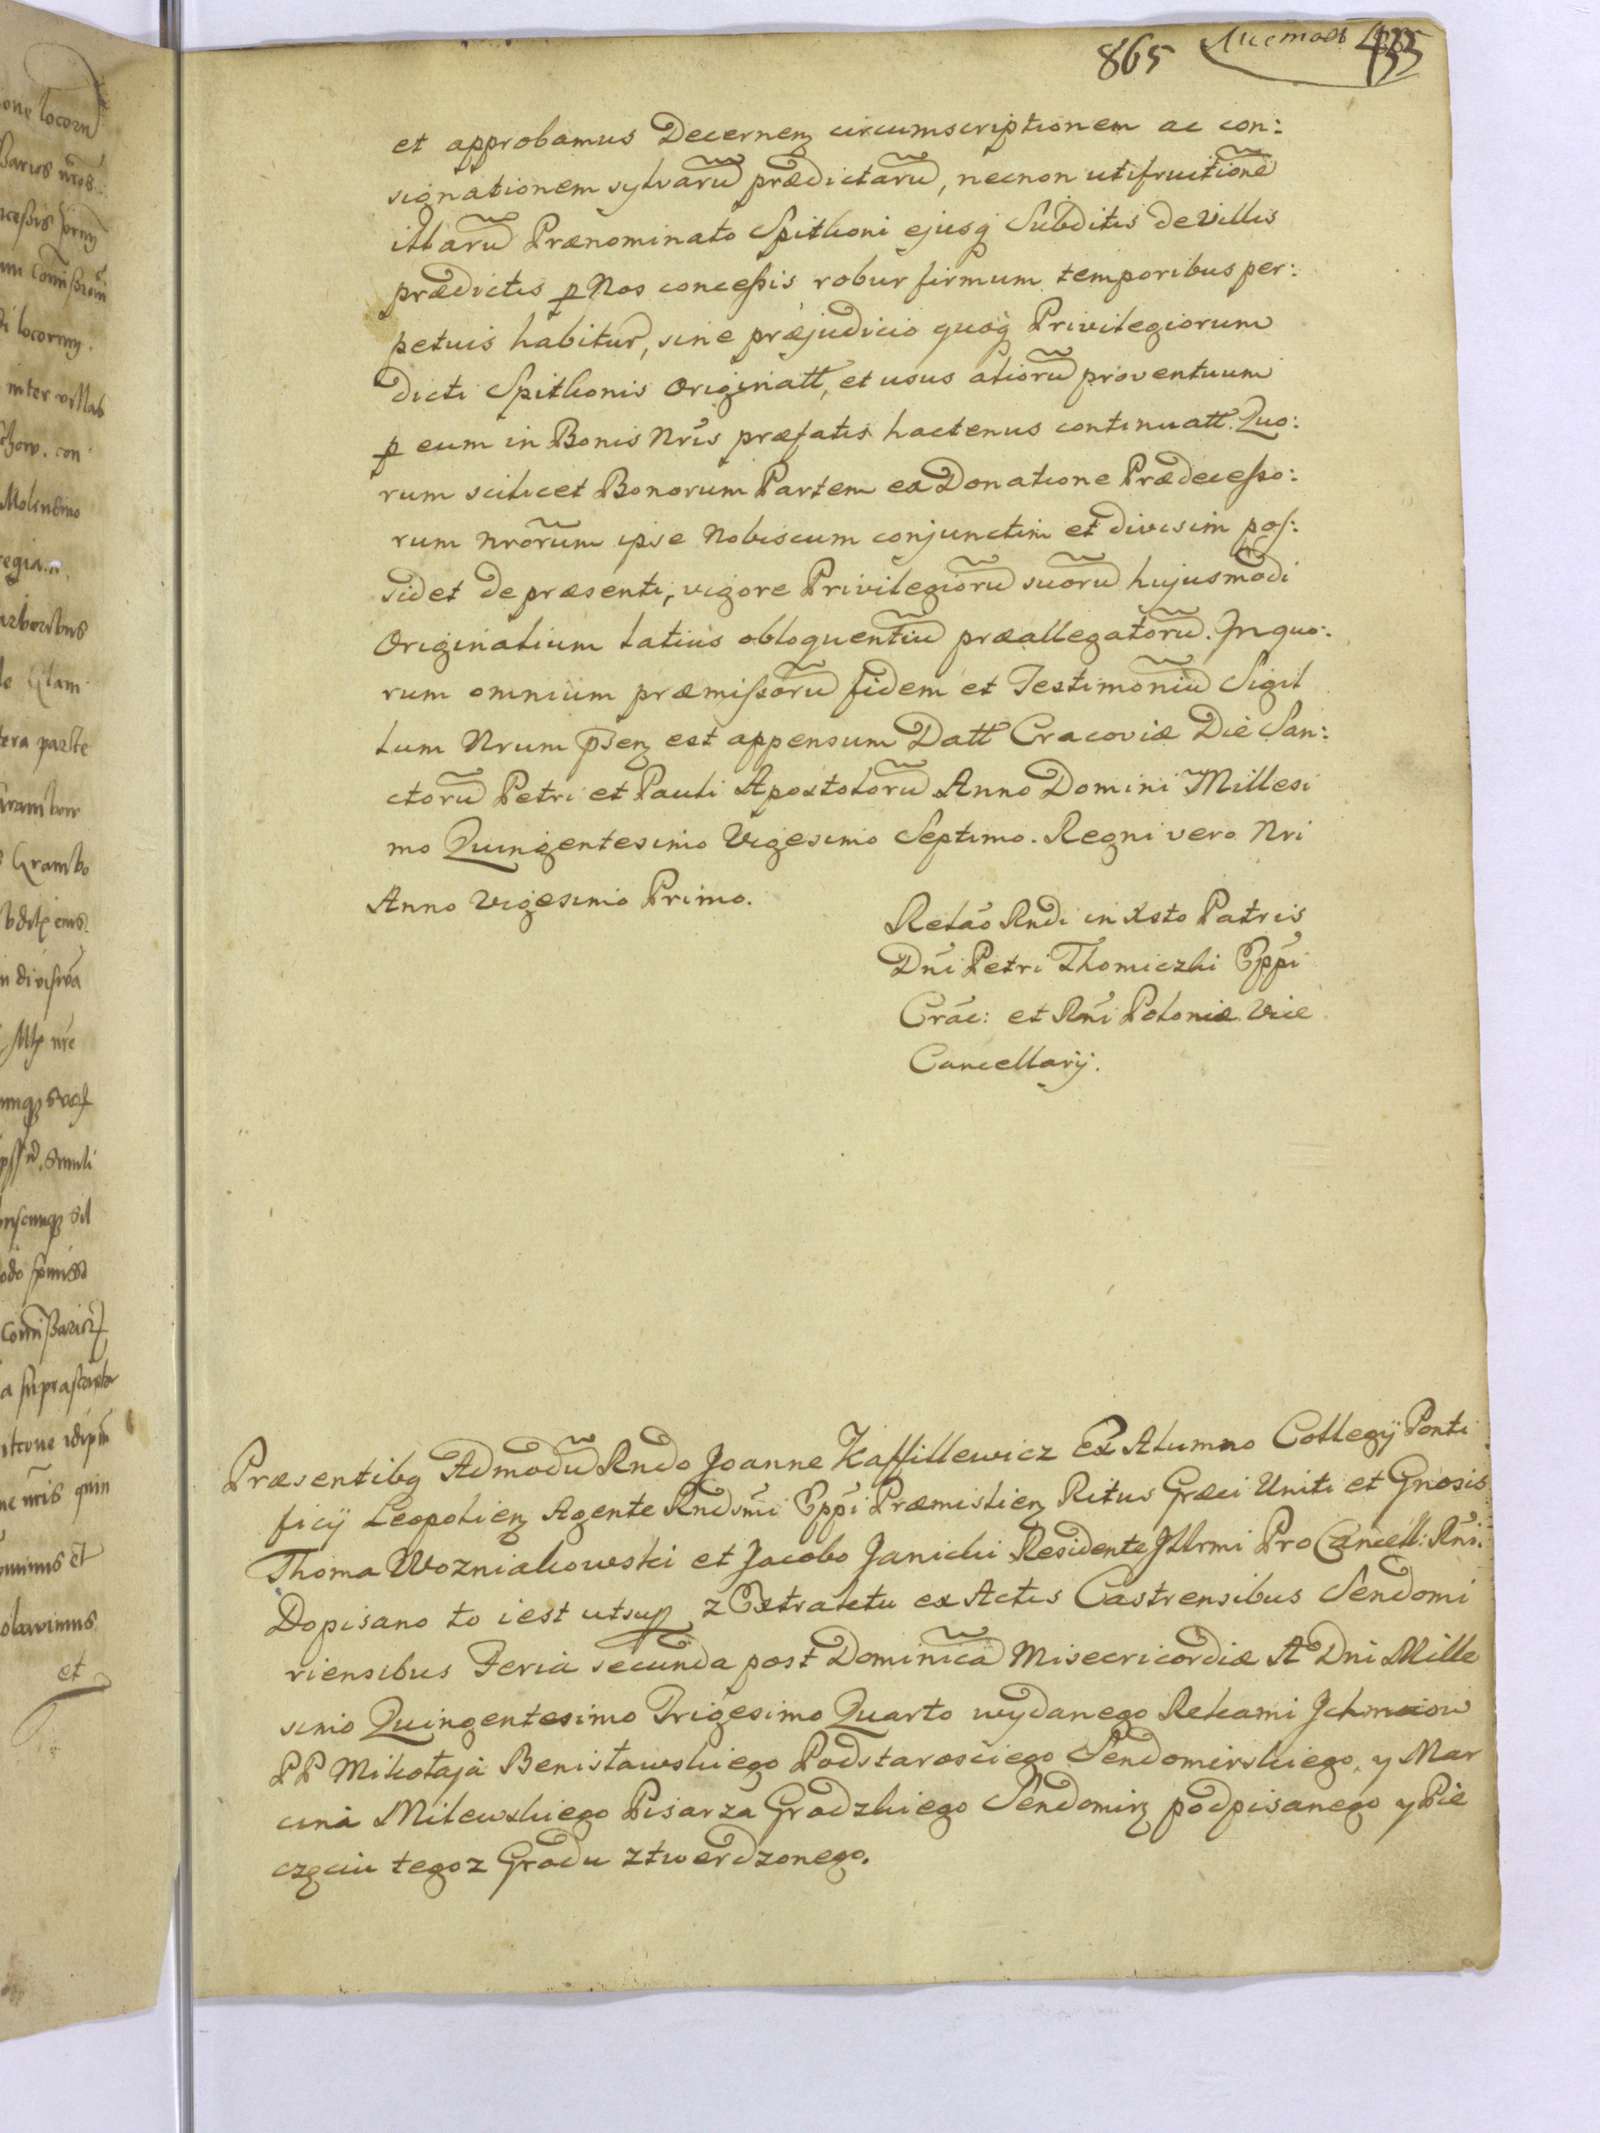 865 Листовъ 433
et approbamus Decernenȝ circumscriptionem ac con:
signationem sylvarũ prædictarũ, necnon utifruitionẽ
illarũ Prænominato Spithoni ejusq Subditis de Villis
prædictis ꝑ Nos conceſsis robur firmum temporibus per:
petuis habitur, sine præjudicio quoq Privilegiorum
dicti Spithonis Originatt, et usus aliorũ proventuum
ꝑ eum in Bonis Nris præfatis hactenus continuatt. Quo:
rum scilicet Bonorum Partem ex Donatione Prædeceſso:
rum nrorum ipse Nobiscum conjunctim et divisim poſ:
sidet de præsenti, vigore Privilegiorũ suorũ hujusmodi
Originalium latius obloquentiũ præallegatorũ. In quo:
rum omnium præmiſsorũ fidem et Testimoniũ Sigil
lum Nrum p̄senȝ est appensum Datt Cracoviæ Die San:
ctorũ Petri et Pauli Apostolorũ Anno Domini Millesi
mo Quingentesimo Vigesimo Septimo. Regni vero Nri
Anno Vigesimo Primo.
Relaõ Rndi in Xsto Patris
Dni Petri Thomiczki Eppi
Crac: et Rni Poloniæ Vice
Cancellarij.
Præsentibq Admodũ Rndo Joanne Kaffillewicz Ex Alumno Collegij Ponti
ficij Leopolienȝ Agente Rndsmi Eppi Præmislienȝ Ritus Græci Uniti et Gnosis
Thoma Wozniakowski et Jacobo Janicki Residente Jllrmi Pro Cancell: Rni.
Dopisano to iest utsup z Extraktu ex Actis Castrensibus Sendomi
riensibus Feria secunda post Dominicã Misericordiæ A Dni Mille
simo Quingentesimo Trigesimo Quarto wydanego Rekami Jchmciow
PP Mikołaja Benisławskiego Podstarosciego Sendomirskiego, y Mar
cina Milewskiego Pisarza Grodzkiego Sendomirȝ podpisanego y Pie
częciu tegoz Grodu ztwerdzonego.